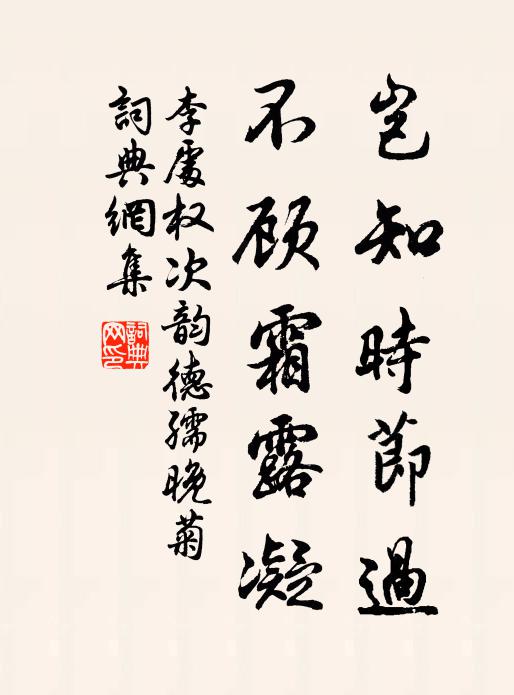 岂知時節過
不顾霜露凝
李處权次韵德孺晚菊
詞典網集
詞典网印